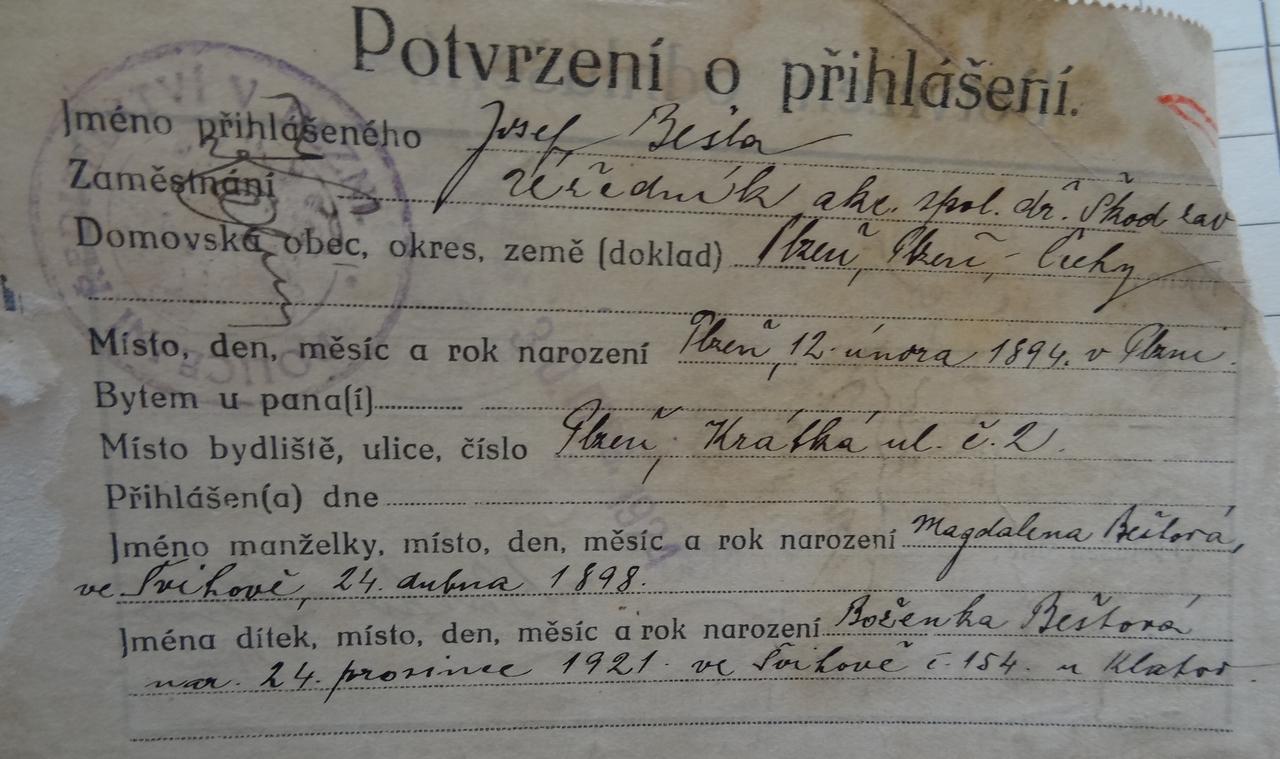 Potvrzení o přihlášení.
Jméno přihlášeného Josef Bešta
Zaměstnání úředník akc. spol. dř. Škod. záv
Domovská obec, okres, země (doklad) Plzeň, Plzeň, Čechy
Místo, den, měsíc a rok narození Plzeň, 12. února 1894. v Plzni.
Bytem u pana(í)
Místo bydliště, ulice, číslo Plzeň, Krátká ul. č. 2.
Přihlášen(a) dne
Jméno manželky, místo, den, měsíc a rok narození Magdalena Beštová,
ve Švihově, 24. dubna 1898.
Jména dítek, místo, den, měsíc a rok narození Boženka Beštová
nar. 24. prosince 1921. ve Švihově č. 154. u Klatov